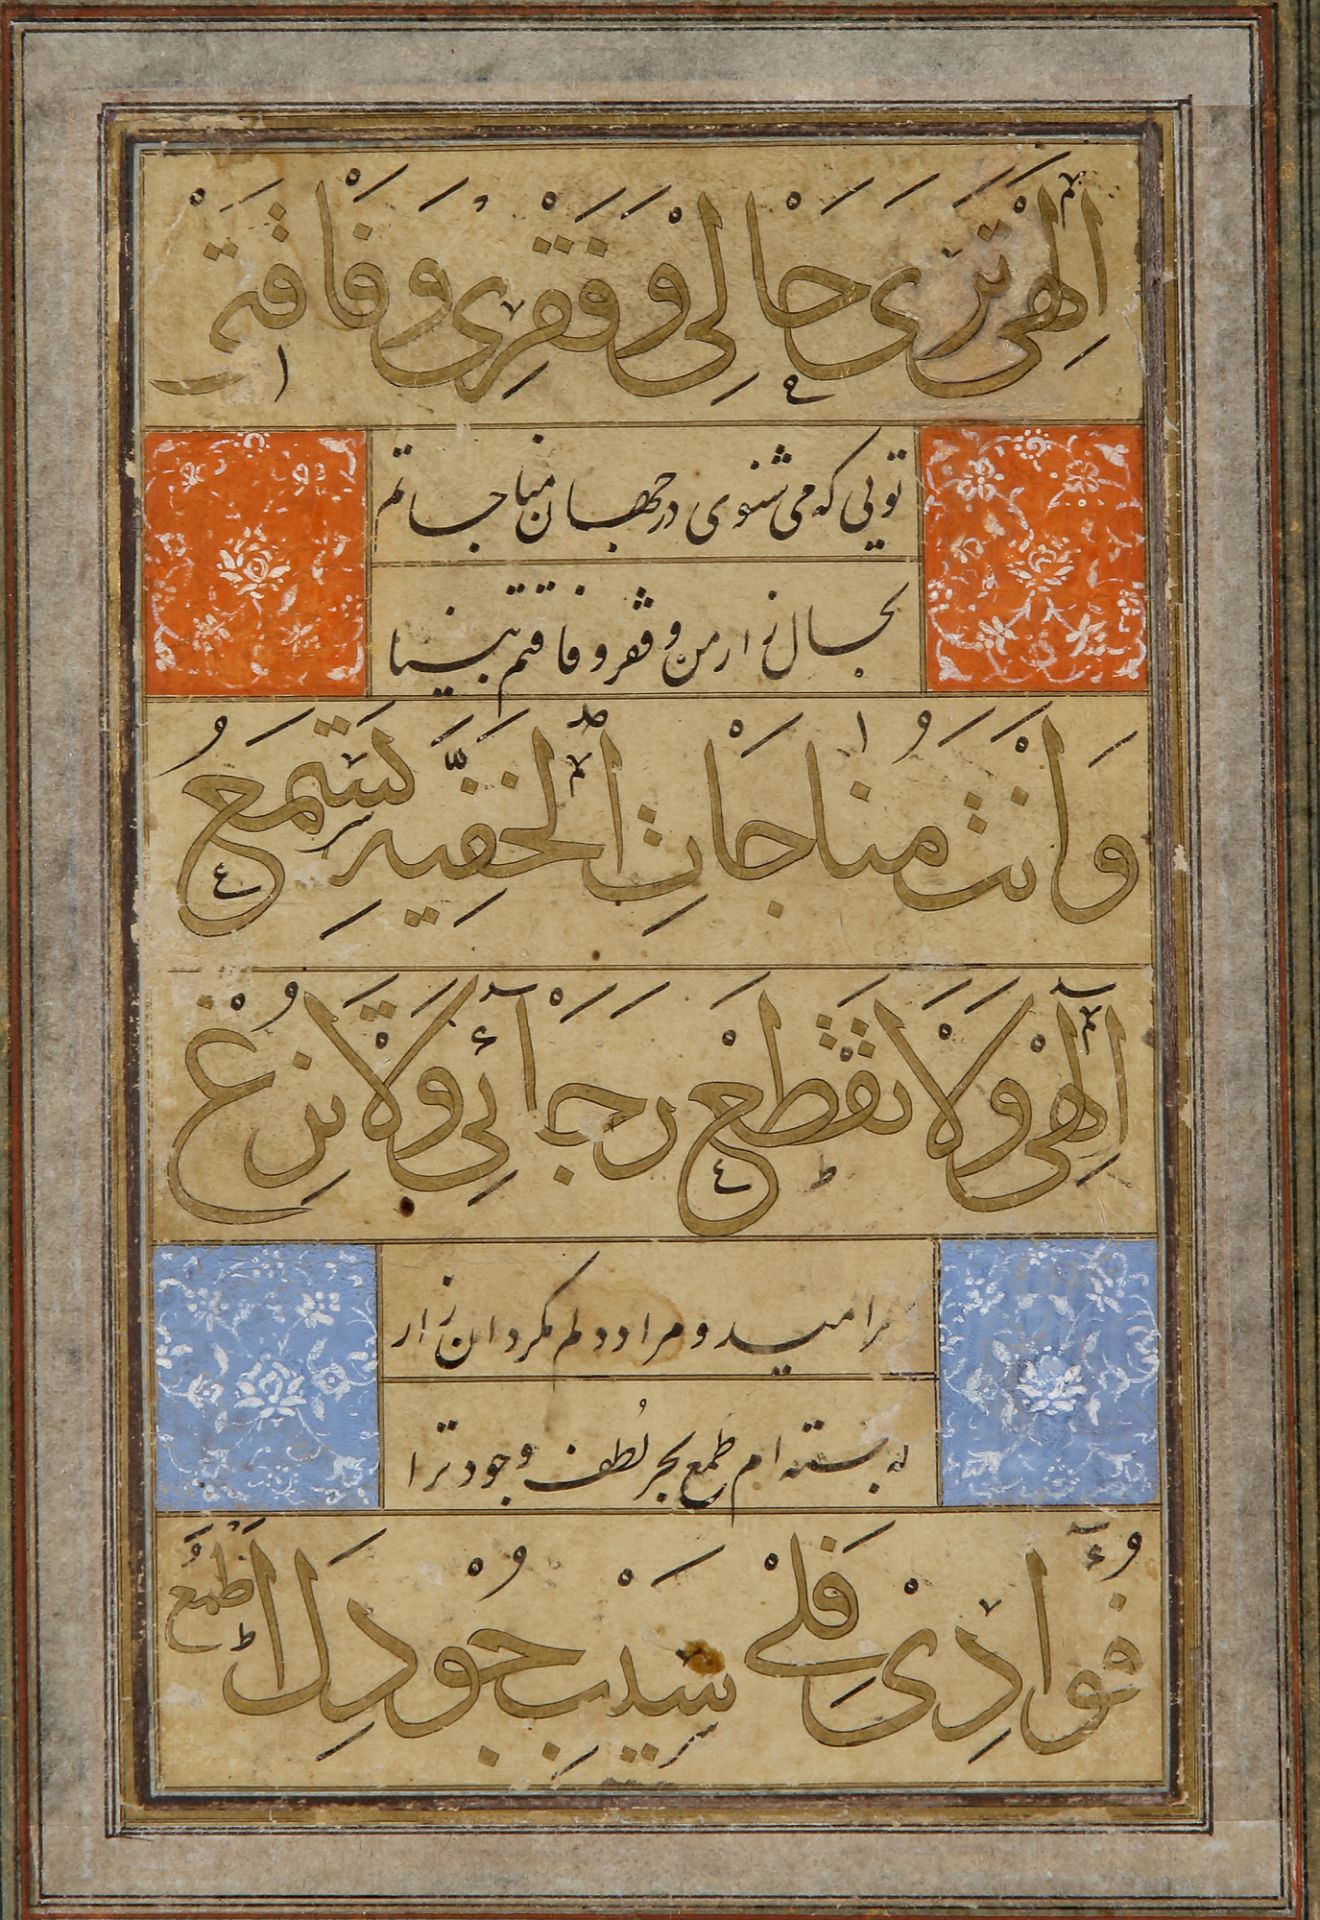 اِلٰهِیْ تَرَیٰ حَالِیْ وَفَقْرِیْ وَفَاقَتِیْ
تویی که می شنوی در جهان مناجاتم
بحال زار من و فقر و فاقتم بینا
وَاَنْتَ مُنَاجَاتِ الْخَفِیَّةِ تَسْتَمِعُ
اِلٰهِیْ وَلَا تَقْطَعْ رَجَآئِیْ وَلَا تُزِغْ
مرا امید و مراد دلم مگردان زار
که بسته ام طمع بحر لطف و جود ترا
فُؤَادِیْ فَلِیْ فِیْ سَیْبِ جُوْدِكَ مَطْمَعُ